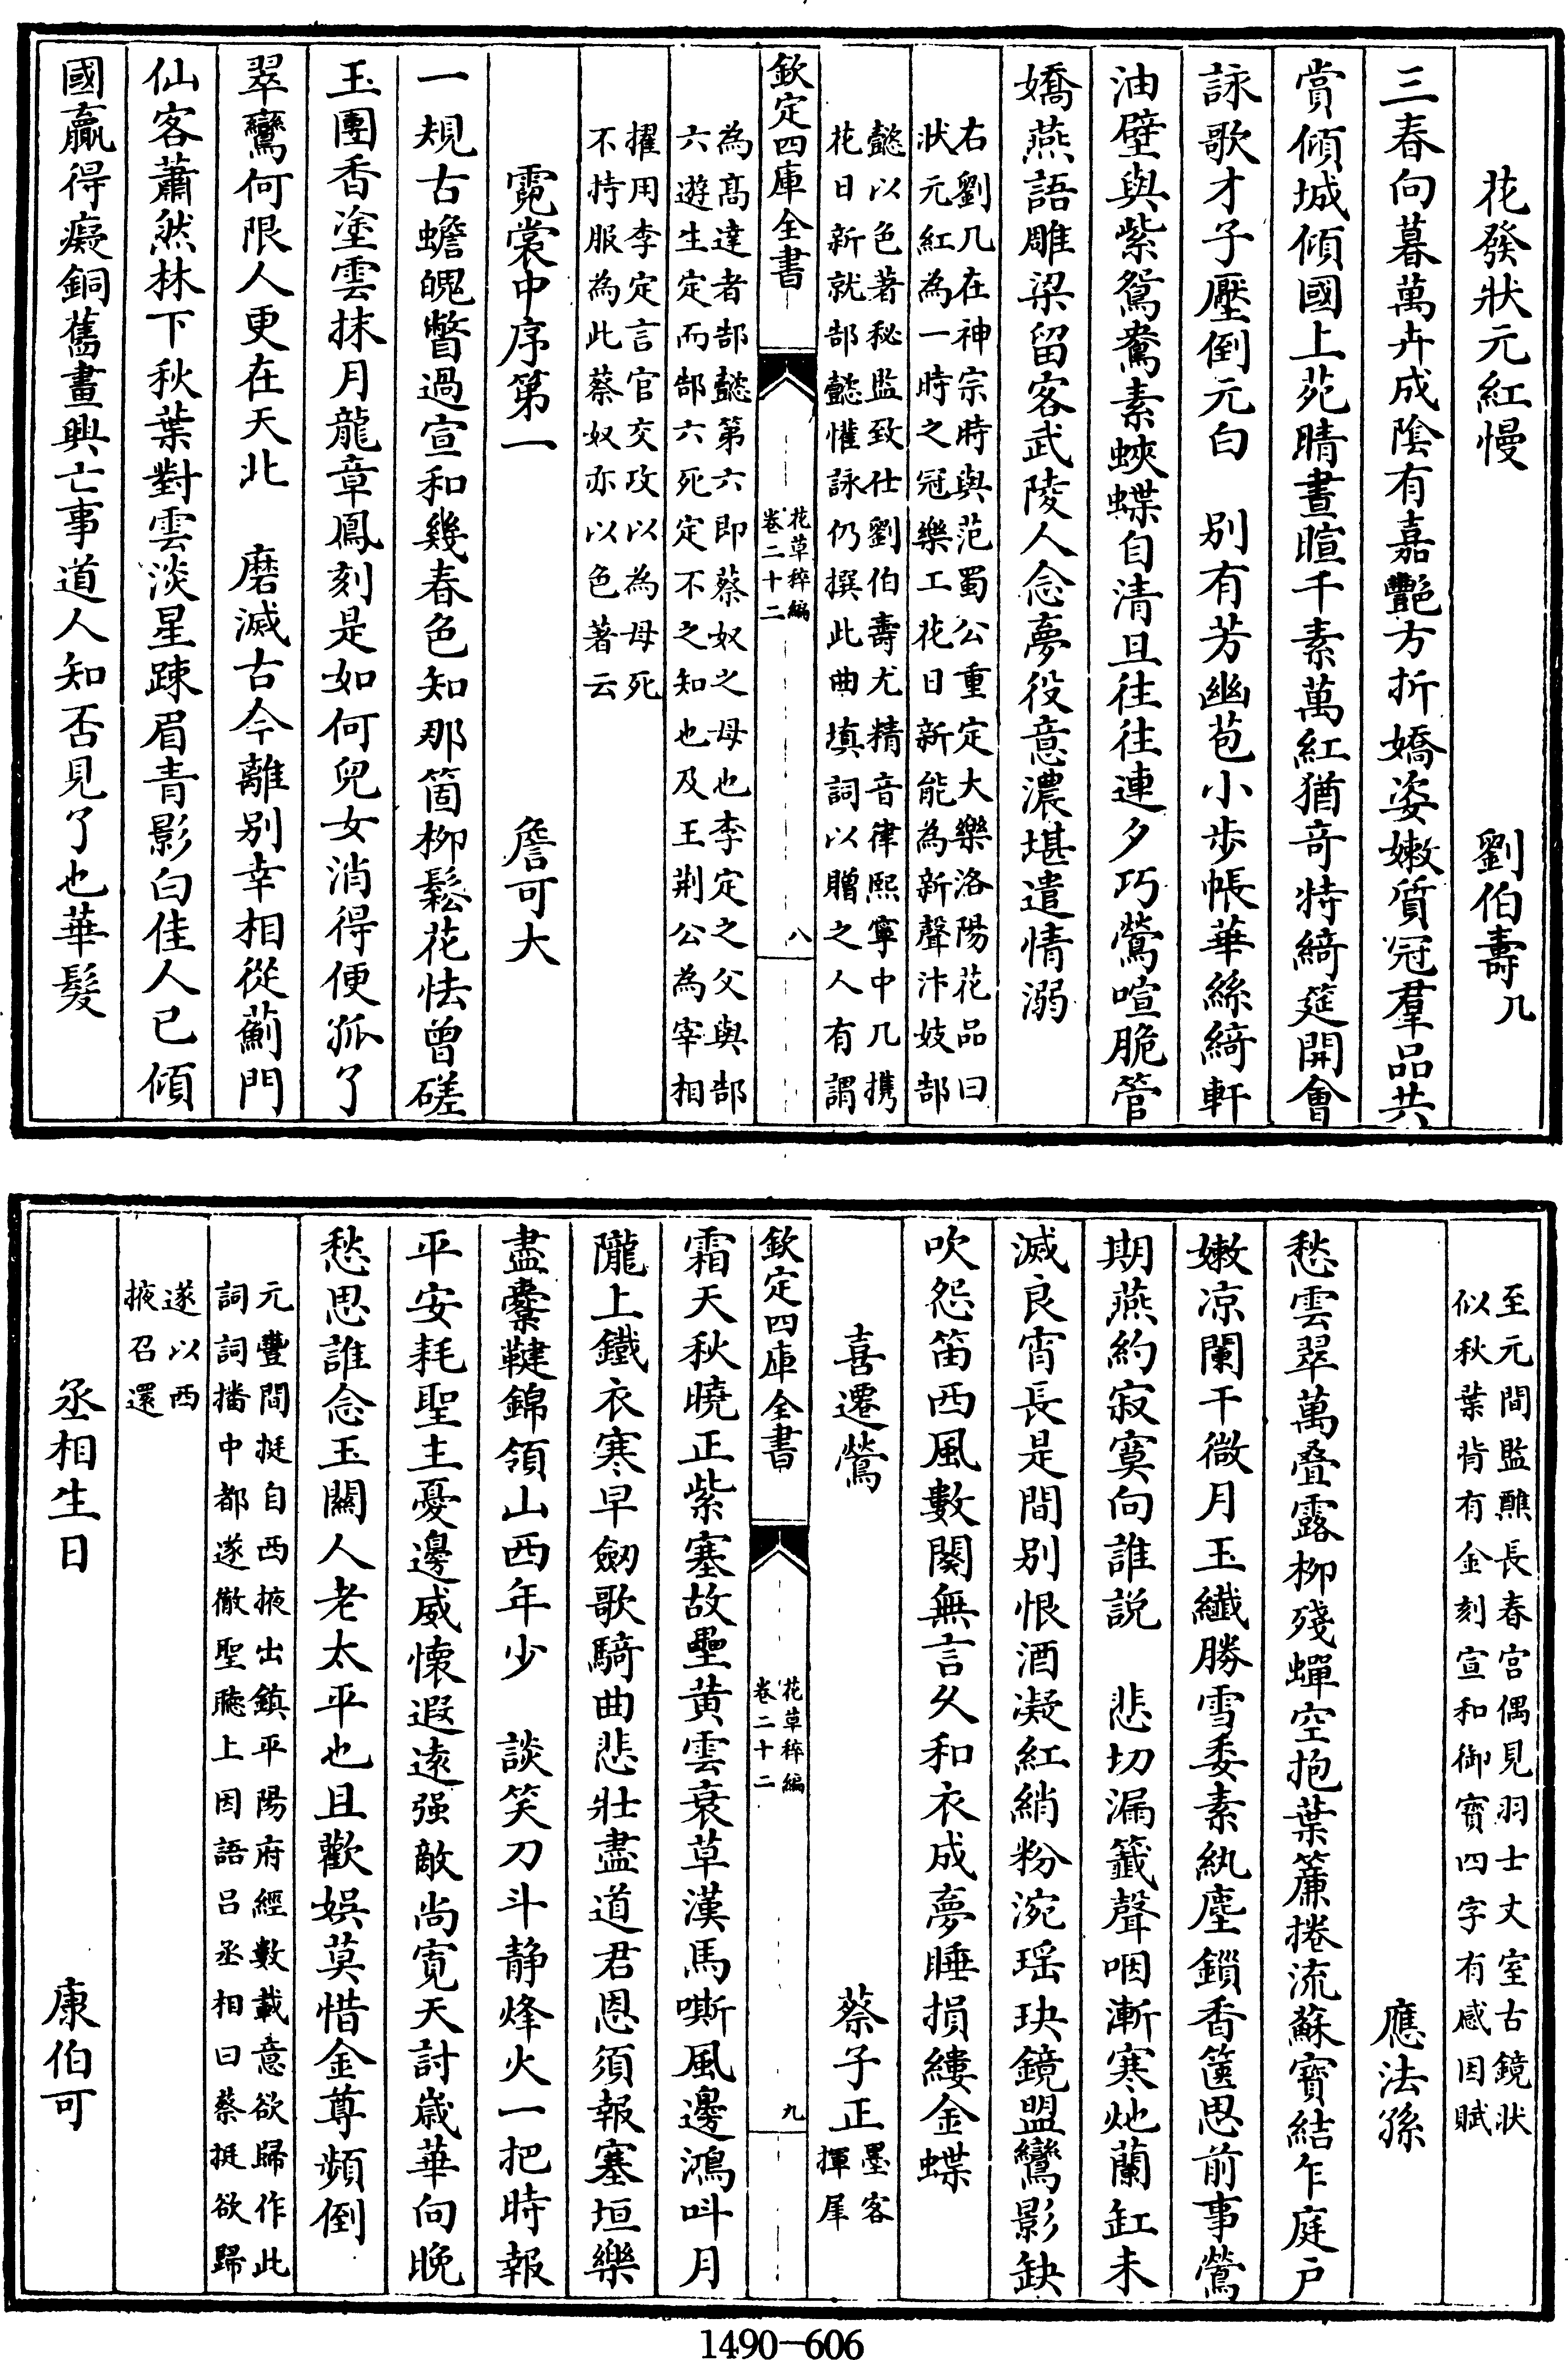 花發狀元紅慢　劉伯壽几
三春向暮萬卉成陰有嘉艷方折嬌姿嫩質冠羣品共
賞傾城傾國上苑晴晝暄千素萬紅猶竒特綺筵開會
詠歌才子壓倒元白　别有芳幽苞小步帳華絲綺軒
油壁與紫鴛鴦素蛺蝶自清旦往往連夕巧鶯喧脆管
嬌燕語雕梁留客武陵人念夢役意濃堪遣情溺
右劉几在神宗時與范蜀公重定大樂洛陽花品曰
狀元紅為一時之冠樂工花日新能為新聲汴妓郜
懿以色著秘監致仕劉伯壽尤精音律熙寧中几携
花日新就郜懿懽詠仍撰此曲填詞以贈之人有謂
欽定四庫全書
花草稡編
卷二十二
八
為髙達者郜懿第六即蔡奴之母也李定之父與郜
六遊生定而郜六死定不之知也及王荆公為宰相
擢用李定言官交攻以為母死
不持服為此蔡奴亦以色著云
霓裳中序第一　詹可大
一規古蟾魄瞥過宣和幾春色知那箇柳鬆花怯曾磋
玉團香塗雲抹月龍章鳳刻是如何兒女消得便孤了
翠鸞何限人更在天北　磨滅古今離别幸相從薊門
仙客蕭然林下秋葉對雲淡星踈眉青影白佳人已傾
國贏得癡銅舊畫興亡事道人知否見了也華髮
至元間監醮長春宫偶見羽士丈室古鏡狀
似秋葉背有金刻宣和御寳四字有感因賦
應法孫
愁雲翠萬叠露柳殘蟬空抱葉簾捲流蘇寳結乍庭户
嫩凉闌干微月玉纖勝雪委素紈塵鎻香篋思前事鶯
期燕約寂寞向誰説　悲切漏籤聲咽漸寒灺蘭缸未
滅良宵長是間别恨酒凝紅綃粉涴瑶玦鏡盟鸞影缺
吹怨笛西風數闋無言久和衣成夢睡損縷金蝶
喜遷鶯　蔡子正墨客揮犀
欽定四庫全書
花草稡編
卷二十二
九
霜天秋曉正紫塞故壘黄雲衰草漢馬嘶風邊鴻呌月
隴上鐵衣寒早劒歌騎曲悲壯盡道君恩須報塞垣樂
盡櫜鞬錦領山西年少　談笑刀斗静烽火一把時報
平安耗聖主憂邊威懷遐逺强敵尚寛天討歲華向晚
愁思誰念玉闗人老太平也且歡娯莫惜金尊頻倒
元豐間挺自西掖出鎮平陽府經數載意欲歸作此
詞詞播中都遂徹聖聽上因語吕丞相曰蔡挺欲歸
遂以西
掖召還
丞相生日　康伯可
1490—606